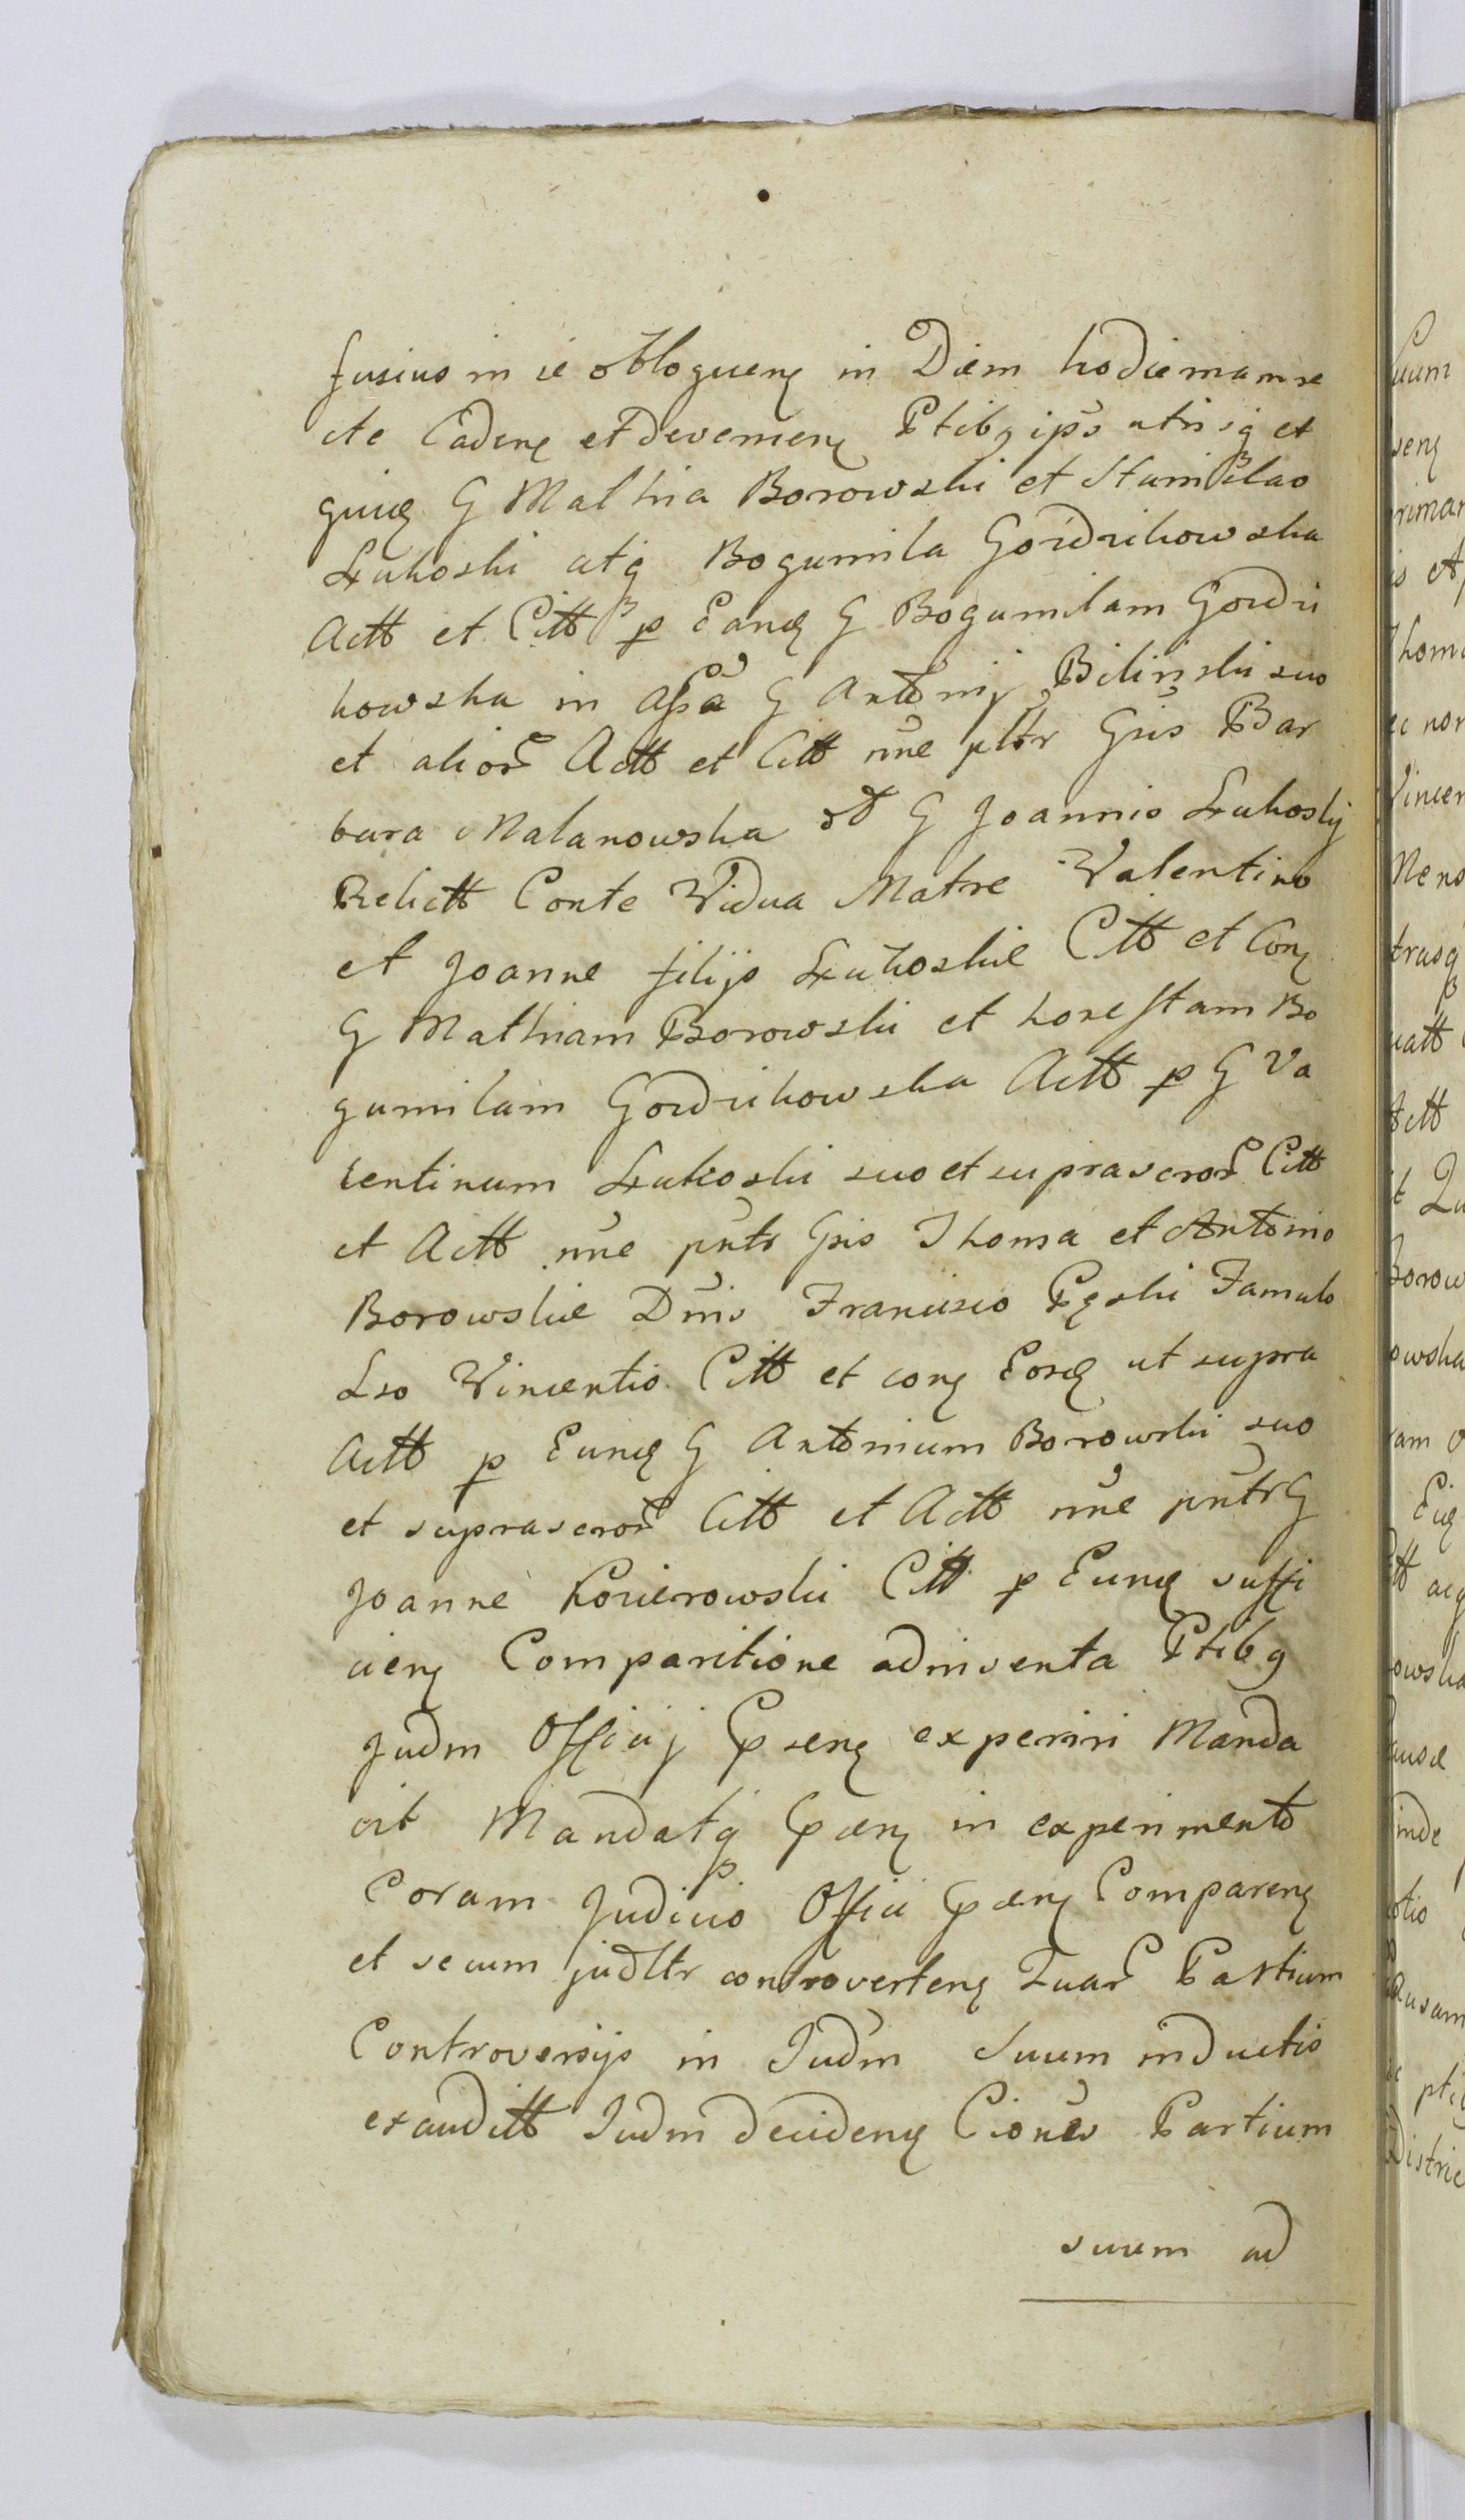 fusius in se obloquen in Diem hodiernam re
cte Caden et devenien Ptibq ips utrisq et
quidem G Mathia Borowski et Stanislao
Łukoski atq Bogumila Gordzikowska
Actt et Citt p Eandem G Bogumilam Gordzi
kowska in Assa G Antonij Bilinski suo
et alior Actt et Citt nne pltr Gsis Bar
bara Malanowska olt G Joannis Łukoskj
Relictt Conte Vidua Matre Valentino
et Joanne filijs Łukoskie Citt et Con
G Mathiam Borowski et honestam Bo
gumilam Gordzikowska Actt p G Va
lentinum Łukoski suo et suprascror Citt
et Actt nne pntr Gsis Thoma et Antonio
Borowskie Dnis Francisco Pęski Famulo
Lso Vincentio Citt et con Eosdem ut supra
Actt p Eundem G Antonium Borowski suo
et suprascror Citt et Actt nne pntr G
Joanne Kozierowski Citt p Eundem suffi
cien Comparitione adinventa Ptibq
Judm Officij Psen experiri Manda
vit Mandatq Psen in experimento
Coram Judicio Offici Psen Comparen
et secum judltr controverten Quar Partium
Controversijs in Judm Suum inductis
exauditt Judm deciden Ciones Partium
suum ad
Suum
sen
Thoma
nor
Vincen
trusq
uatt
Actt
Borow
owska
am
owska
ausæ
inde
ausam
Distric